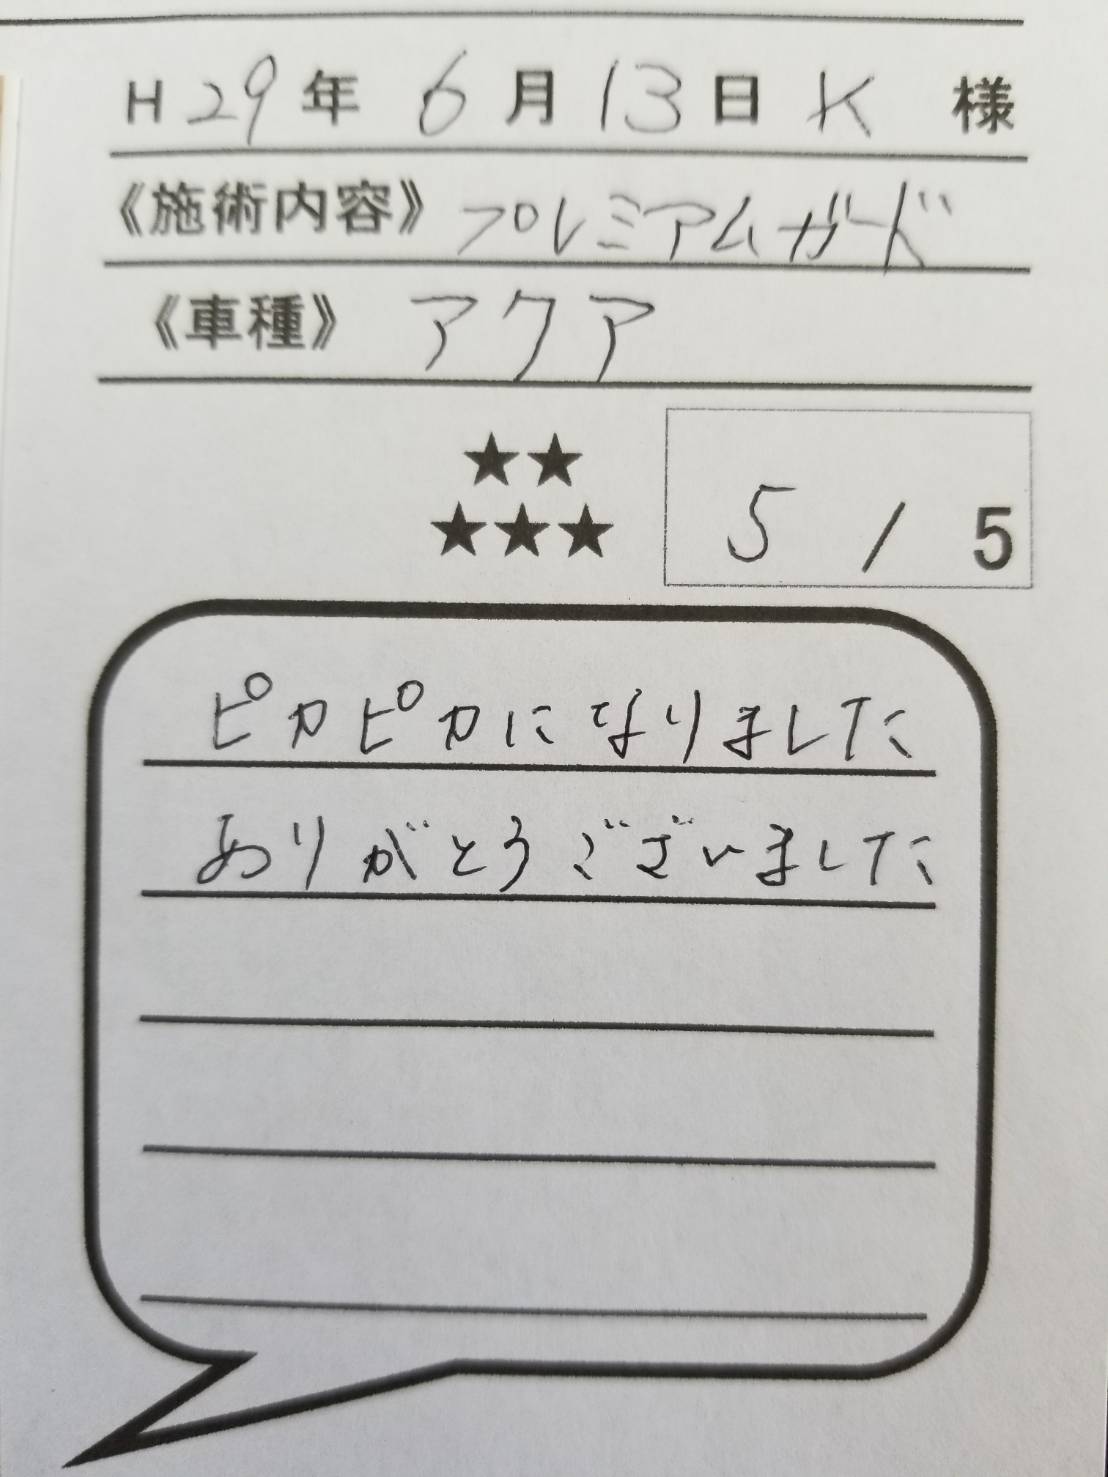 H29年 6月13日 K 様
《施術内容》 プレミアムガード
《車種》 アクア
★★
★★★
5 / 5
ピカピカになりました
ありがとうございました